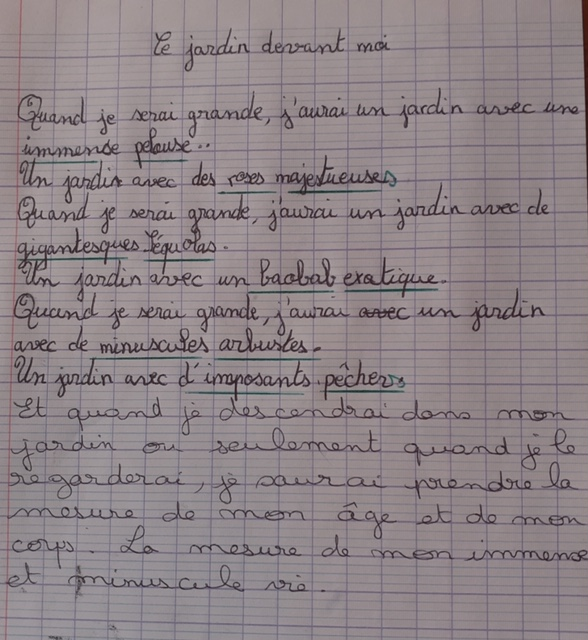 Le jardin devant moi
Quand je serai grande, j'aurai un jardin avec une
immense pelouse..
Un jardin avec des roses majestueuses
Quand je serai grande, j'aurai un jardin avec de
gigantesques séquoias.
Un jardin avec un baobab exatique.
Quand je serai grande, j'aurai avec un jardin
avec de minuscules arbustes.
Un jardin avec d'imposants pêchers
Et quand je descendrai dans mon
jardin ou seulement quand je le
regarderai, je saurai prendre la
mesure de mon âge et de mon
corps. La mesure de mon immense
et minuscule vie.